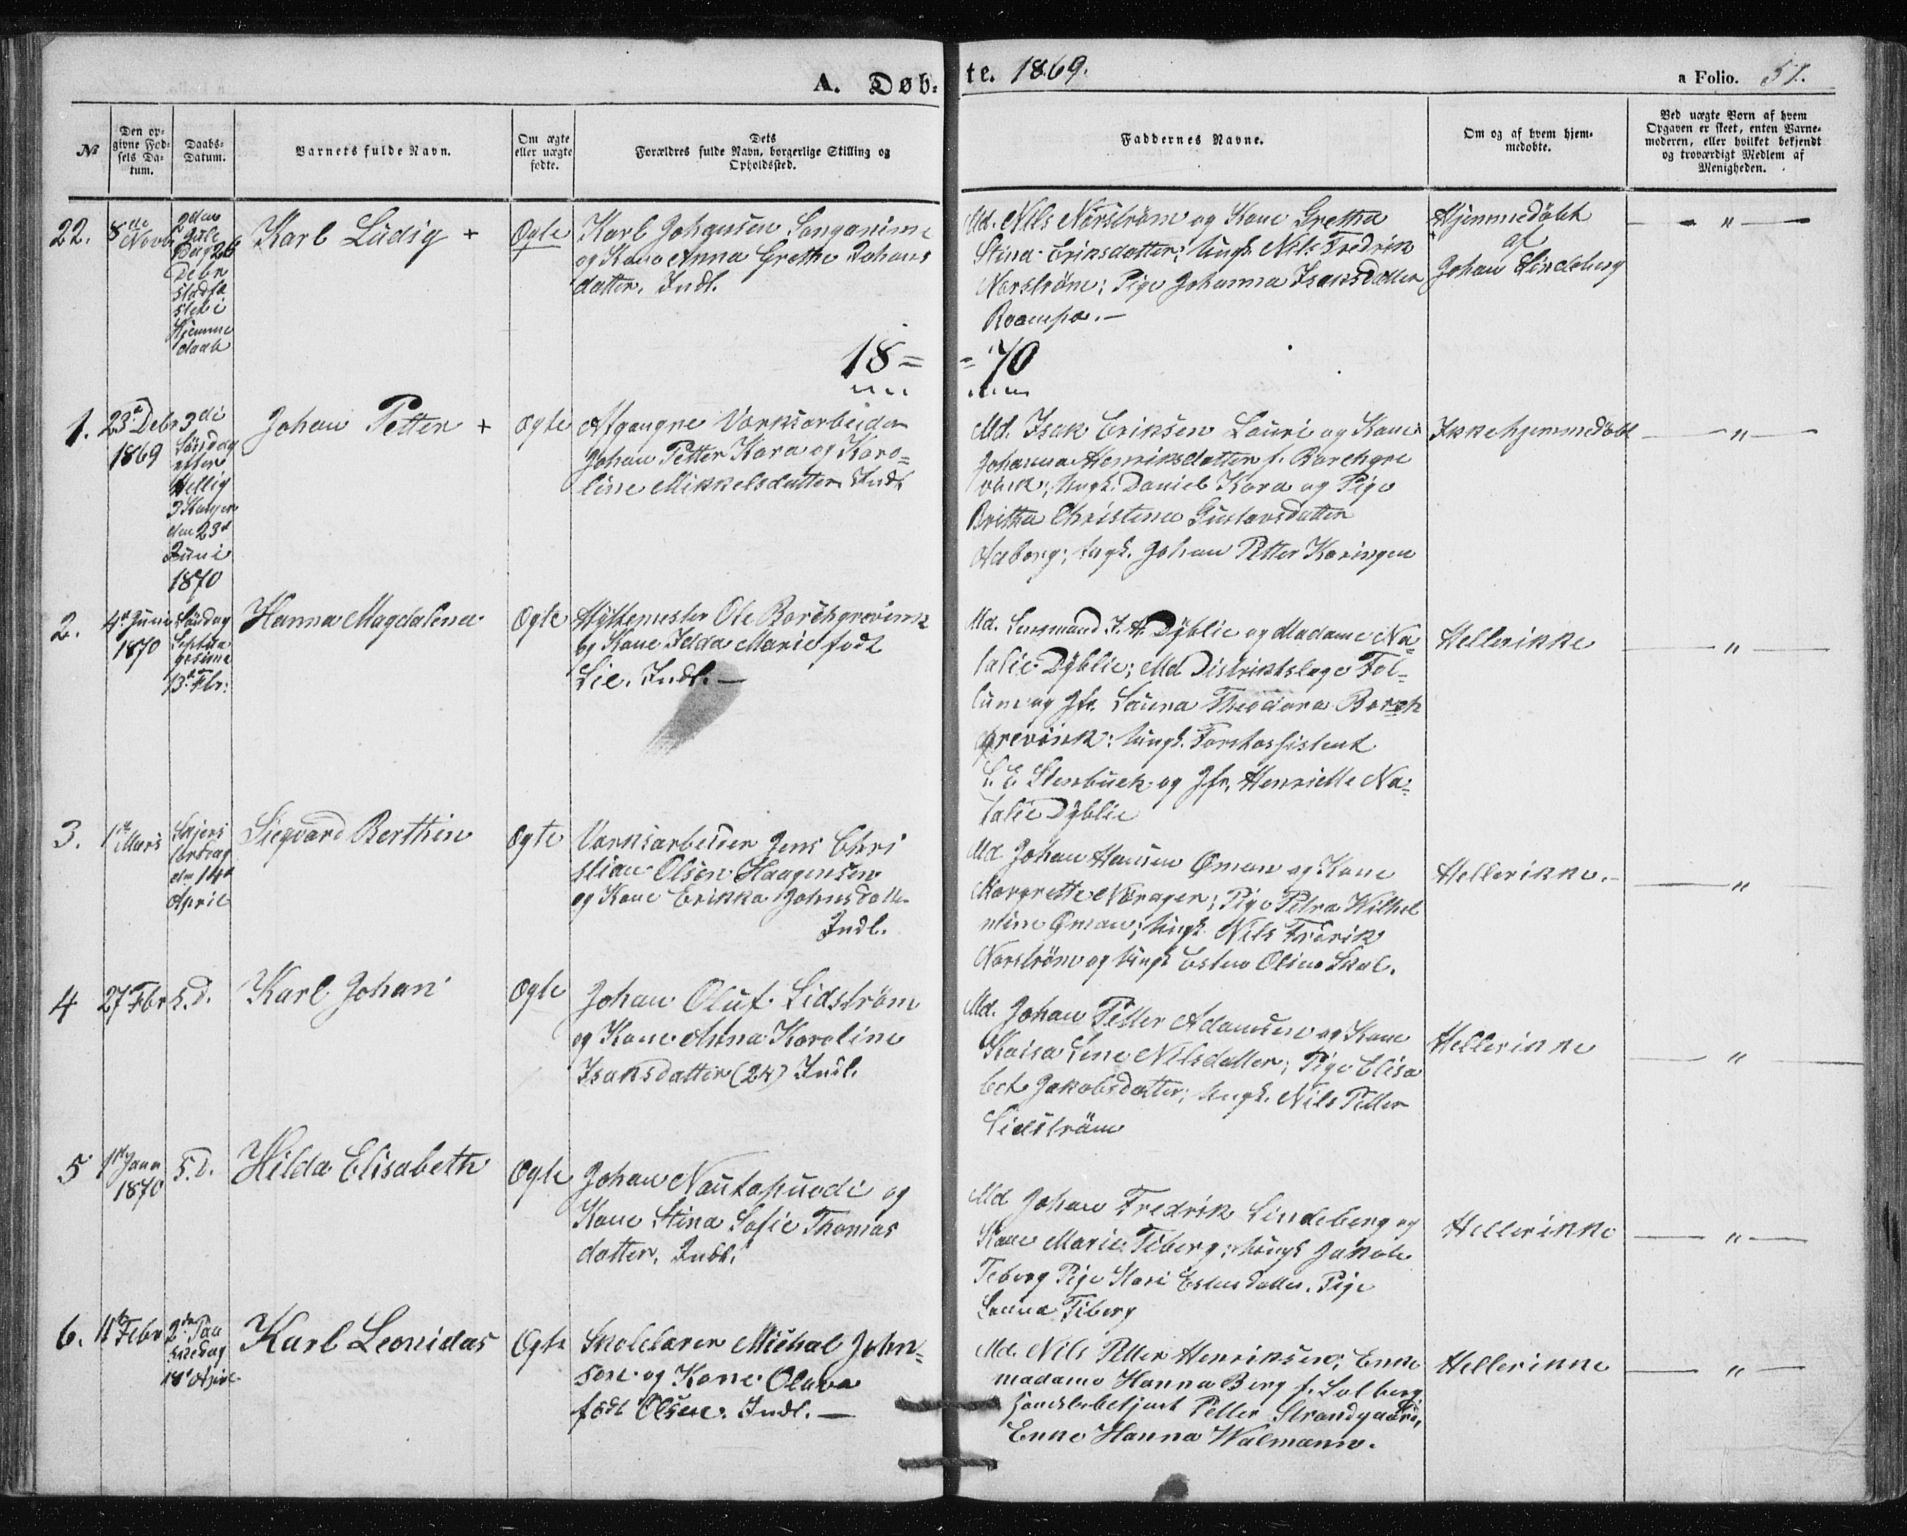 A. Døb-
te. 1869.
a Folio. 51.
№
Den op-
givne Fød-
sels Da-
tum.
Daabs-
Datum.
Barnets fulde Navn.
Om ægte
eller uægte
fødte.
Dets
Forældres fulde Navn, borgerlige Stilling og
Opholdssted.
Faddernes Navne.
Om og af hvem hjem-
medøbte.
Ved uægte Børn af hvem
Opgaven er skeet, enten Barne-
moderen, eller hvilket bekjendt
og troværdigt Medlem af
Menigheden.
22.
8de
Novbr
2den
Jule
Dag 26
Debr
stadfæ
stet i
Hjemme
daab
Karl Ludig +
Ægte
Karl Johansen
og Kone Anna Grethe Johans
datter. Indl.
Md. Nils Norström og Kone Gretha
Stina Eriksdatter; Ungk. Nils Fredrik
Norström; Pige Johanna Isaksdatter
Hjemmedöbt
af
Johan Lindeberg
— " —
18 =
= 70
1.
23d Debr
1869
3di
Söndag
efter
Hellig
3 Konger
den 23d
1870
Johan Petter +
Ægte
Afgangne Værksarbeider
Johan Petter Kora og Karo-
line Mikkelsdatter Indl.
Md. Isak Eriksen Lauri og Kone
Johanna Henriksdatter f. Borchgre
vink; Ungk. Daniel Kora og Pige
Britha Christina Gustavsdatter
Ungk. Johan Petter
Ikke hjemmedöbt
— " —
2.
1870
Söndag
Septua
gesima
13d Fbr:
Hanna Magdalena
Ægte
Hyttemester Ole Borchgrevink
og Kone Ilda Marie født
Lie. Indl. —
Md. Lensmand Dÿblie og Madame Na-
talie Dÿblie; Md Distriktslæge Fol-
lum og Jfr. Laura Theodora Borch
grevink; Ungk. Forstassistent
Stenbuck og Jfr. Henriette Na-
talie Dÿblie
Hellerikke
— " —
3.
1ste
Mars
Skjærs
torsdag
den 14d
April
Siegvard Berthin
Ægte
Værksarbeider Jens Chri
stian Olsen Haagensen
og Kone Erikka Johnsdatter
Indl.
Md Johan Hansen Öman og Kone
Margrethe Nerager; Pige Petra Wilhel
mine Öman; Ungk. Nils Fredrik
Norström og Ungk
Hellerikke.
— " —
4
27 Fbr
S. D.
Karl Johan
Ægte
Johan Oluf Lidström
og Kone Anna Karoline
Isaksdatter (24) Indl.
Md. Johan Petter Adamsen og Kone
Kaisa Lena Nilsdatter; Pige Elisa
bet Jakobsdatter; Ungk. Nils Petter
Lidström
Hellerikke
— " —
5
1ste Janr
1870
S. D.
Hilda Elisabeth
Ægte
Johan Nautapuodi og
Kone Stina Sofie Thomas
datter. Indl.
Md Johan Fredrik Lindeberg og
Kone Marie Tiberg; Ungk Jakob
Teberg Pige Pige
Tiberg
Hellerikke
— " —
6.
11te Febr
2den Paa
skedag
18d April
Karl Leonidas
Ægte
Skolelærer Michal John-
sen og Kone Olava
født Olsen. Indl. —
Md. Nils Petter Henriksen; Enke
madame Hanna Berg f. Solberg
Handelsbetjent Petter Strandgaard,
Enke Hanna Walmann.
Hellerikke
— " —